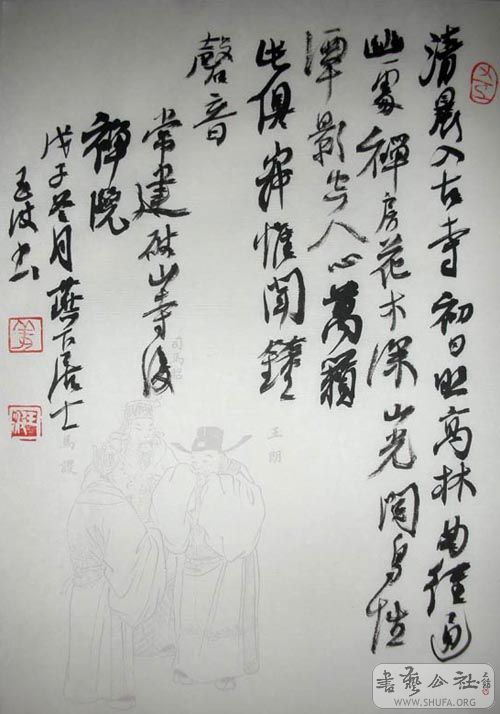 清晨入古寺初日照高林曲徑通
幽處禪房花木深山光閱鳥性
潭影空人心萬籟
此俱寂惟聞鐘
磬音
常建破山寺後
禪院
戊子冬月燕居士
书
王朗
書藝公社
WWW.SHUFA.ORG